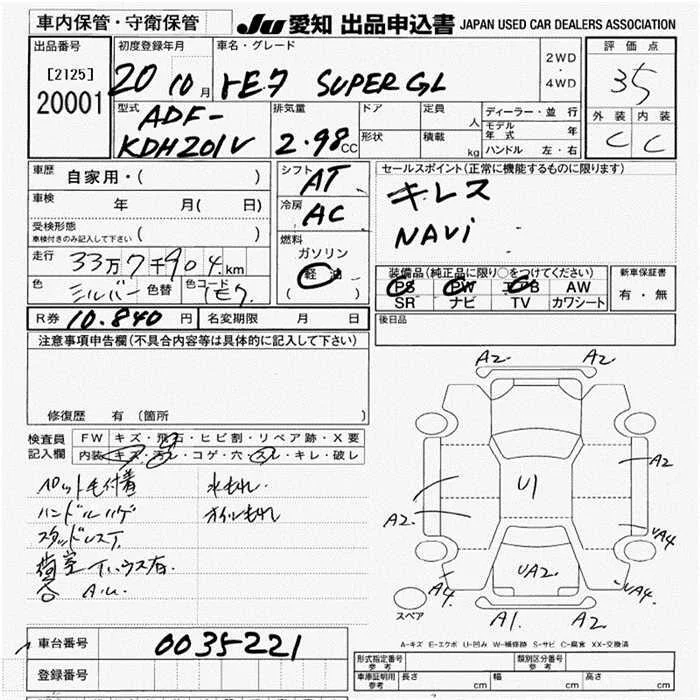 車内保管・守衛保管
JU 愛知 出品申込書 JAPAN USED CAR DEALERS ASSOCIATION
出品番号
[2125]
20001
初度登録年月
20 10月
車名・グレード
SUPER GL
2WD
・
4WD
評価点
35
外装 内装
C C
型式
ADF-
KDH201V
排気量
2.98CC
ドア
形状
定員 人
積載 kg
ディーラー・並行
モデル年式 年
ハンドル 左・右
車歴 自家用・( )
車検 年 月( 日)
受検形態
車検付きのみ記入して下さい ( )
走行 33万7千904km
色 シルバー 色替 色コード 1E7
シフト AT
冷房 AC
燃料
ガソリン
軽油
( )
セールスポイント(正常に機能するものに限ります)
キレス
NAVi
装備品(純正品に限り○をつけてください)
PS PW エアB AW
SR ナビ TV カワシート
新車保証書
有・無
R券 10.840円 名変期限 月 日
後日品
注意事項申告欄(不具合内容等は具体的に記入して下さい)
修復歴 有(箇所 )
検査員
記入欄
FW キズ・飛石・ヒビ割・リペア跡・X要
内装 キズ・汚レ・コゲ・穴・スレ・キレ・破レ
ペット毛付着 水もれ.
ハンドルハゲ オイルもれ
スタッドレスT.
A2. A2.
A2
A2.
U1
UA4
UA2.
A4. UA4.
A1. A2
スペア
A-キズ E-エクボ U-凹み W-補修跡 S-サビ C-腐食 XX-交換済
車台番号 0035221
登録番号
形式指定番号
参考
類別区分番号
参考
車庫証明用
参考
長さ cm 幅 cm 高さ cm